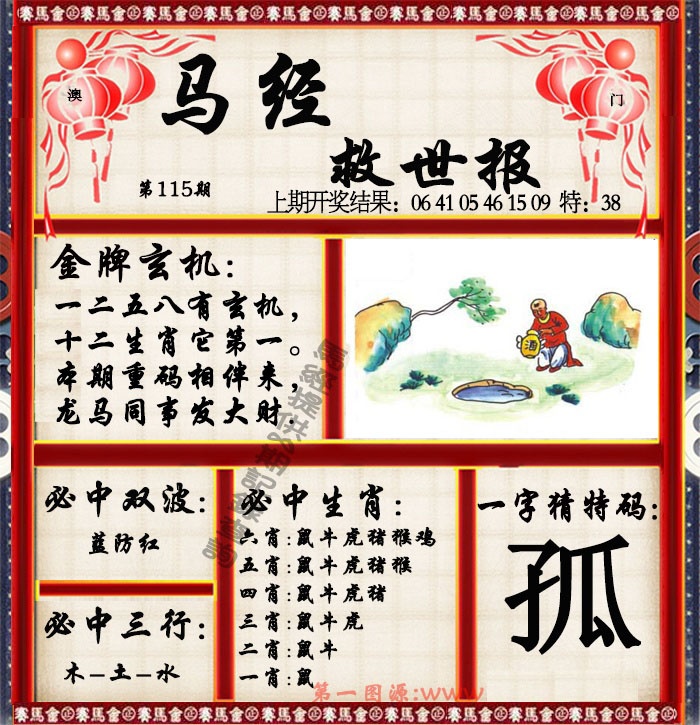 賽馬會 賽馬會 賽馬會 賽馬會 賽馬會 賽馬會 賽馬會
澳
门
马经
救世报
第115期
上期开奖结果：06 41 05 46 15 09 特：38
金牌玄机：
一二五八有玄机，
十二生肖它第一。
本期重码相伴来，
龙马同事发大财.
酒
必中双波：
蓝防红
必中三行：
木–土–水
必中生肖：
六肖:鼠牛虎猪猴鸡
五肖:鼠牛虎猪猴
四肖:鼠牛虎猪
三肖:鼠牛虎
二肖:鼠牛
一肖:鼠
一字猜特码：
孤
第一图源:www